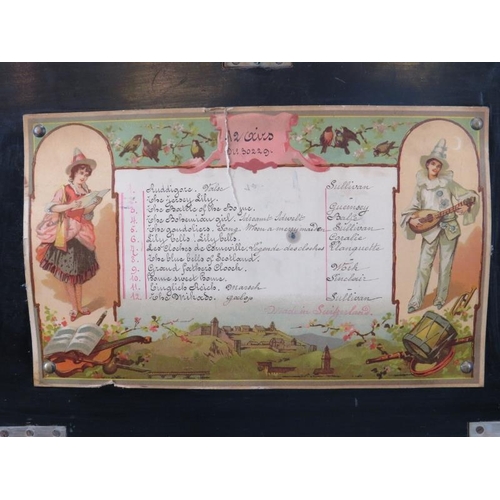 12 Airs
1. Ruddigore. Valse Sullivan
2. The Jersey Lily. -
3. The Battle of the Boyne. Guernsey
4. The Bohemian girl. Balfe
5. The gondoliers. Song. When a merry maid Sullivan
6. Lily bells, Lily bells.
7. Les Cloches de Corneville. Légende des cloches Planquette
8. The blue bells of Scotland. -
9. Grand father's Clock. Work
10. Home sweet home. Sinclair
11. English march -
12. The Mikado. galop Sullivan